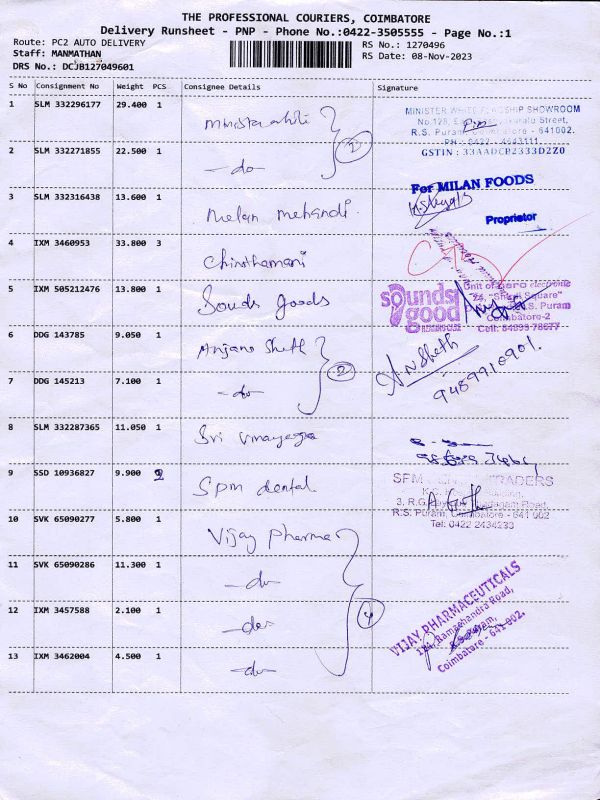 THE PROFESSIONAL COURIERS, COIMBATORE
Delivery Runsheet - PNP - Phone No.:0422-3505555 - Page No.:1
Route: PC2 AUTO DELIVERY
RS No.: 1270496
Staff: MANMATHAN
RS Date: 08-Nov-2023
DRS No.: DCJB127049601
S No Consignment No Weight PCS Consignee Details Signature
1 SLM 332296177 29.400 1
MINISTER WHITE FLAGSHIP SHOWROOM
No.128,
R.S. Puram, Coimbatore - 641002.
PH : 0422 - 4643111
GSTIN : 33AADCB2333D2Z0
2 SLM 332271855 22.500 1 -do- 2
3 SLM 332316438 13.600 1 Melan mehandi
For MILAN FOODS
Proprietor
4 IXM 3460953 33.800 3 Chinthamani
5 IXM 505212476 13.800 1 Sounds goods
sounds good
HEARING CARE
Unit of electronic
24, "Shanti Square"
R.S. Puram
Coimbatore-2
Cell: 84893 78677
6 DDG 143785 9.050 1 Anjana Sheth
A N Sheth
9489910901.
7 DDG 145213 7.100 1 -do- 2
8 SLM 332287365 11.050 1 Sri Vinayaga
9 SSD 10936827 9.900 2 Spm dental
TRADERS
R.S. Puram, Coimbatore - 641 002
Tel: 0422 2434233
10 SVK 65090277 5.800 1 Vijay Pharma
11 SVK 65090286 11.300 1 -do-
12 IXM 3457588 2.100 1 -do- 4
13 IXM 3462004 4.500 1 -do-
VIJAY PHARMACEUTICALS
Ramachandra Road,
R.S. Puram,
Coimbatore - 641 002.